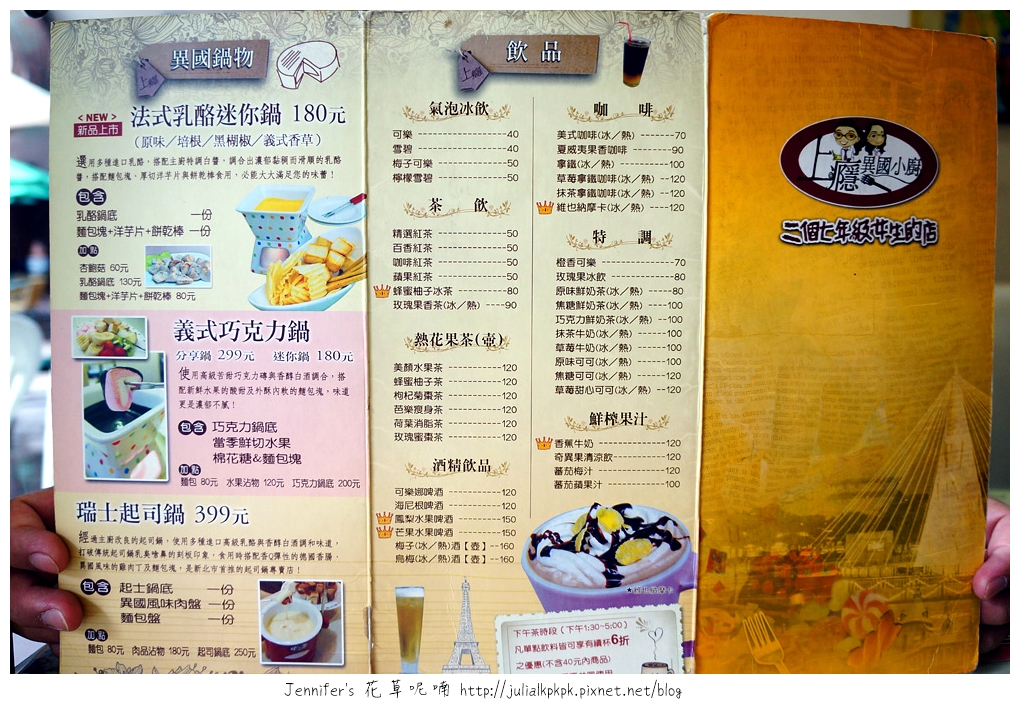 異國鍋物
上癮
<NEW>
新品上市
法式乳酪迷你鍋 180元
(原味/培根/黑胡椒/義式香草)
選用多種進口乳酪,搭配主廚特調白醬,調合出濃郁黏稠而滑順的乳酪
醬,搭配麵包塊、厚切洋芋片與餅乾棒食用,必能大大滿足您的味蕾!
包含
乳酪鍋底 一份
麵包塊+洋芋片+餅乾棒 一份
加點
杏鮑菇 60元
乳酪鍋底 130元
麵包塊+洋芋片+餅乾棒 80元
義式巧克力鍋
分享鍋 299元 迷你鍋 180元
使用高級苦甜巧克力磚與香醇白酒調合,搭
配新鮮水果的酸甜及外酥內軟的麵包塊,味道
更是濃郁不膩!
包含
巧克力鍋底
當季鮮切水果
棉花糖&麵包塊
加點
麵包 80元 水果沾物 120元 巧克力鍋底 200元
瑞士起司鍋 399元
經過主廚改良的起司鍋,使用多種進口高級乳酪與香醇白酒調和味道,
打破傳統起司鍋乳臭嗆鼻的刻板印象,食用時搭配香Q彈性的德國香腸、
異國風味的雞肉丁及麵包塊,是新北市首推的起司鍋專賣店!
包含
起士鍋底 一份
異國風味肉盤 一份
麵包盤 一份
加點
麵包 80元 肉品沾物 180元 起司鍋底 250元
飲品
上癮
氣泡冰飲
可樂 40
雪碧 40
梅子可樂 50
檸檬雪碧 50
茶飲
精選紅茶 50
百香紅茶 50
咖啡紅茶 50
蘋果紅茶 50
蜂蜜柚子冰茶 80
玫瑰果香茶(冰/熱) 90
熱花果茶(壺)
美顏水果茶 120
蜂蜜柚子茶 120
枸杞菊棗茶 120
芭樂瘦身茶 120
荷葉消脂茶 120
玫瑰蜜棗茶 120
酒精飲品
可樂娜啤酒 120
海尼根啤酒 120
鳳梨水果啤酒 150
芒果水果啤酒 150
梅子(冰/熱)酒【壺】 160
烏梅(冰/熱)酒【壺】 160
咖啡
美式咖啡(冰/熱) 70
夏威夷果香咖啡 90
拿鐵(冰/熱) 100
草莓拿鐵咖啡(冰/熱) 120
抹茶拿鐵咖啡(冰/熱) 120
維也納摩卡(冰/熱) 120
特調
橙香可樂 70
玫瑰果冰飲 80
原味鮮奶茶(冰/熱) 80
焦糖鮮奶茶(冰/熱) 100
巧克力鮮奶茶(冰/熱) 100
抹茶牛奶(冰/熱) 100
草莓牛奶(冰/熱) 100
原味可可(冰/熱) 100
焦糖可可(冰/熱) 120
草莓甜心可可(冰/熱) 120
鮮榨果汁
香蕉牛奶 120
奇異果清涼飲 120
蕃茄梅汁 120
蕃茄蘋果汁 100
下午茶時段(下午1:30~5:00)
凡單點飲料皆可享有續杯6折
之優惠(不含40元內商品)
上癮異國小廚
三個七年級女生的店
Jennifer's 花草呢喃 http://julialkpkpk.pixnet.net/blog